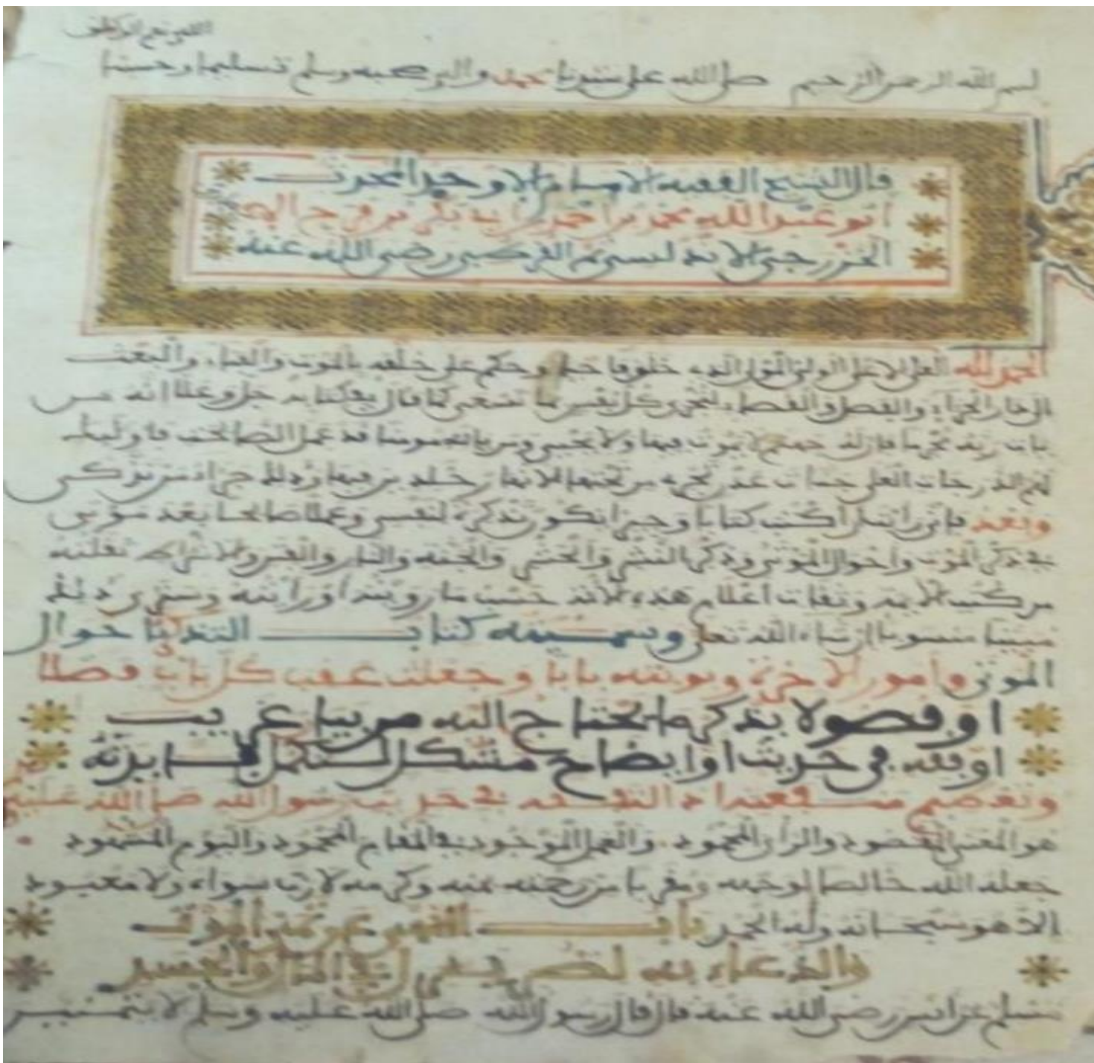 بسم الله الرحمن الرحيم صلى الله على سيدنا محمد واله وصحبه وسلم تسليما
قال الشيخ الفقيه الامام الاوحد المحدث
ابو عبد الله محمد بن احمد بن ابي بكر بن فرح
الخزرجي الاندلسي ثم القرطبي رضي الله عنه
الحمد لله العلي الاعلى الولي المولى الذي خلق فاحيا وحكم على خلقه بالموت والفناء والبعث
الى دار الجزاء والفصل والقضاء لتجزى كل نفس بما تسعى كما قال في كتابه جل وعلا انه من
يات ربه مجرما فان له جهنم لا يموت فيها ولا يحيى ومن ياته مومنا قد عمل الصالحات فاوليك
لهم الدرجات العلى جنات عدن تجري من تحتها الانهار خلدين فيها وذلك جزاء من تزكى
وبعد فاني رايت ان اكتب كتابا وجيزا يكون تذكرة لنفسي وعملا صالحا بعد موتي
في ذكر الموت واحوال الموتى وذكر النشر والحشر والجنة والنار والفتن والاشراط نقلته
من كتب الايمة وثقات اعلام هذه الامة حسب ما رويته او رايته وسترى ذلك
مبينا منسوبا ان شاء الله تعلى وسميته كتاب التذكرة باحوال
الموتى وامور الاخرة وبوبته بابا بابا وجعلت عقب كل باب فصلا
او فصولا يذكر ما يحتاج اليه من بيان غريب
او فقه في حديث او ايضاح مشكل لتكمل فايدته
وتعظم منفعته اذ التفقه في حديث رسول الله صلى الله عليه
هو المعنى المقصود والراي المحمود والعمل الموجود في المقام المحمود واليوم المشهود
جعله الله خالصا لوجهه ومقربا من رحمته بمنه وكرمه لا رب سواه ولا معبود
الا هو سبحانه وله الحمد باب النهي عن تمني الموت
والدعاء به لضر ينزل في المال والجسد
مسلم عن انس رضي الله عنه قال قال رسول الله صلى الله عليه وسلم لا يتمنين